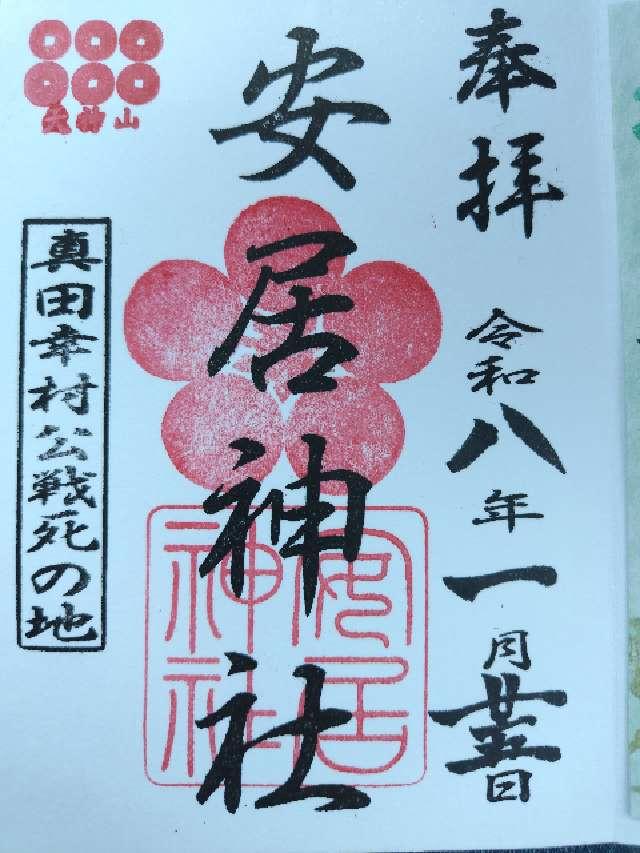 奉拝
令和八年一月廿五日
安居神社
安居神社
真田幸村公戦死の地
天神山